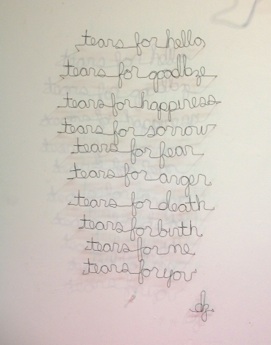 tears for hello
tears for goodbye
tears for happiness
tears for sorrow
tears for fear
tears for anger
tears for death
tears for birth
tears for me
tears for you